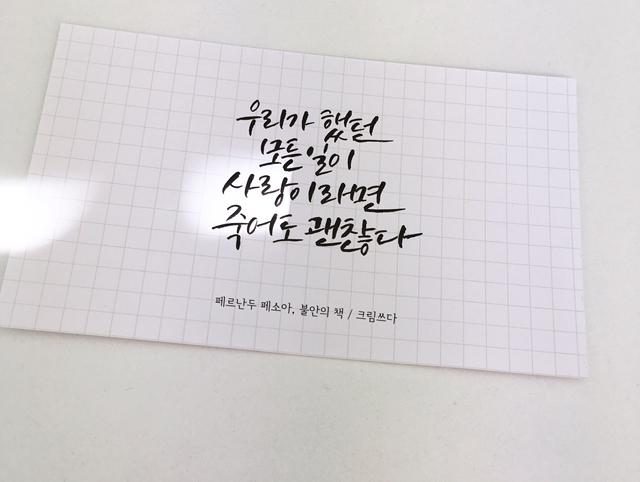 우리가 했던
모든 일이
사랑이라면
죽어도 괜찮다
페르난두 페소아, 불안의 책 / 크림쓰다